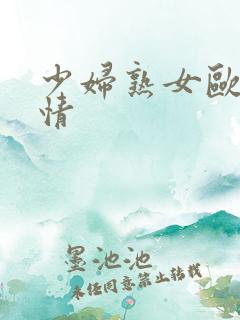 少婦熟女歐
情
墨池池
未经同意禁止转载